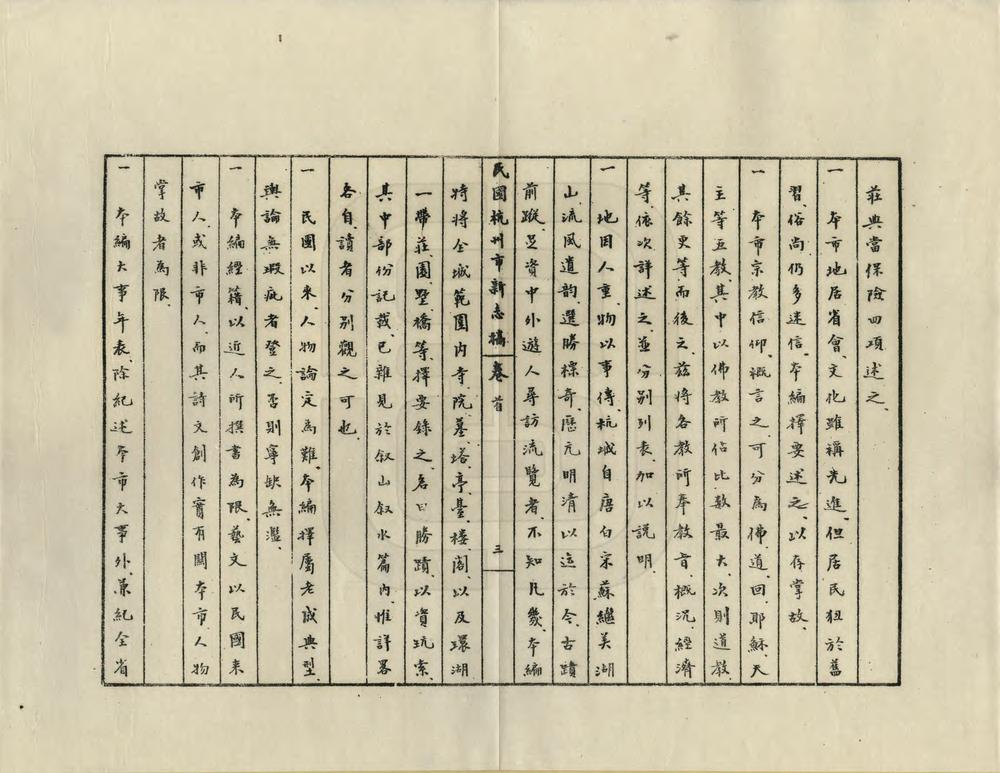 莊典當保險四項述之、
一　本市地居省會、文化雖稱先進、但居民狃於舊
習、俗尚仍多迷信、本編擇要述之、以存掌故、
一　本市宗教信仰、概言之、可分為佛、道、回、耶穌、天
主等五教、其中以佛教所佔比數最大、次則道教、
其餘更等而後之、茲將各教所奉教旨、概況、經濟
等、依次詳述之、並分別列表、加以說明、
一　地因人重、物以事傳、杭城自唐白宋蘇繼美湖
山、流風遺韵、選勝標奇、歷元明清以迄於今、古蹟
前蹤、足資中外遊人尋訪流覽者、不知凡幾、本編
民國杭州市新志稿　卷首　三
特將全城範圍內寺、院、墓、塔、亭、臺、樓、閣、以及環湖
一帶莊、園、墅、橋等、擇要錄之、名曰勝蹟、以資玩索、
其中部份記載、已雜見於叙山叙水篇內、惟詳畧
各自、讀者分別觀之可也、
一　民國以來、人物論定為難、本編擇屬老成典型、
輿論無瑕疵者登之、否則寧缺無濫、
一　本編經籍、以近人所撰書為限、藝文以民國來
市人、或非市人、而其詩文創作實有關本市人物
掌故者為限、
一　本編大事年表、除紀述本市大事外、兼紀全省